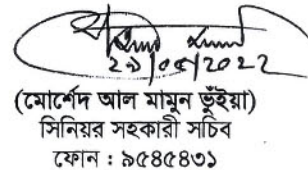 ২৯/০৫/২০২২
(মোর্শেদ আল মামুন ভূঁইয়া)
সিনিয়র সহকারী সচিব
ফোন : ৯৫৪৫৪৩১